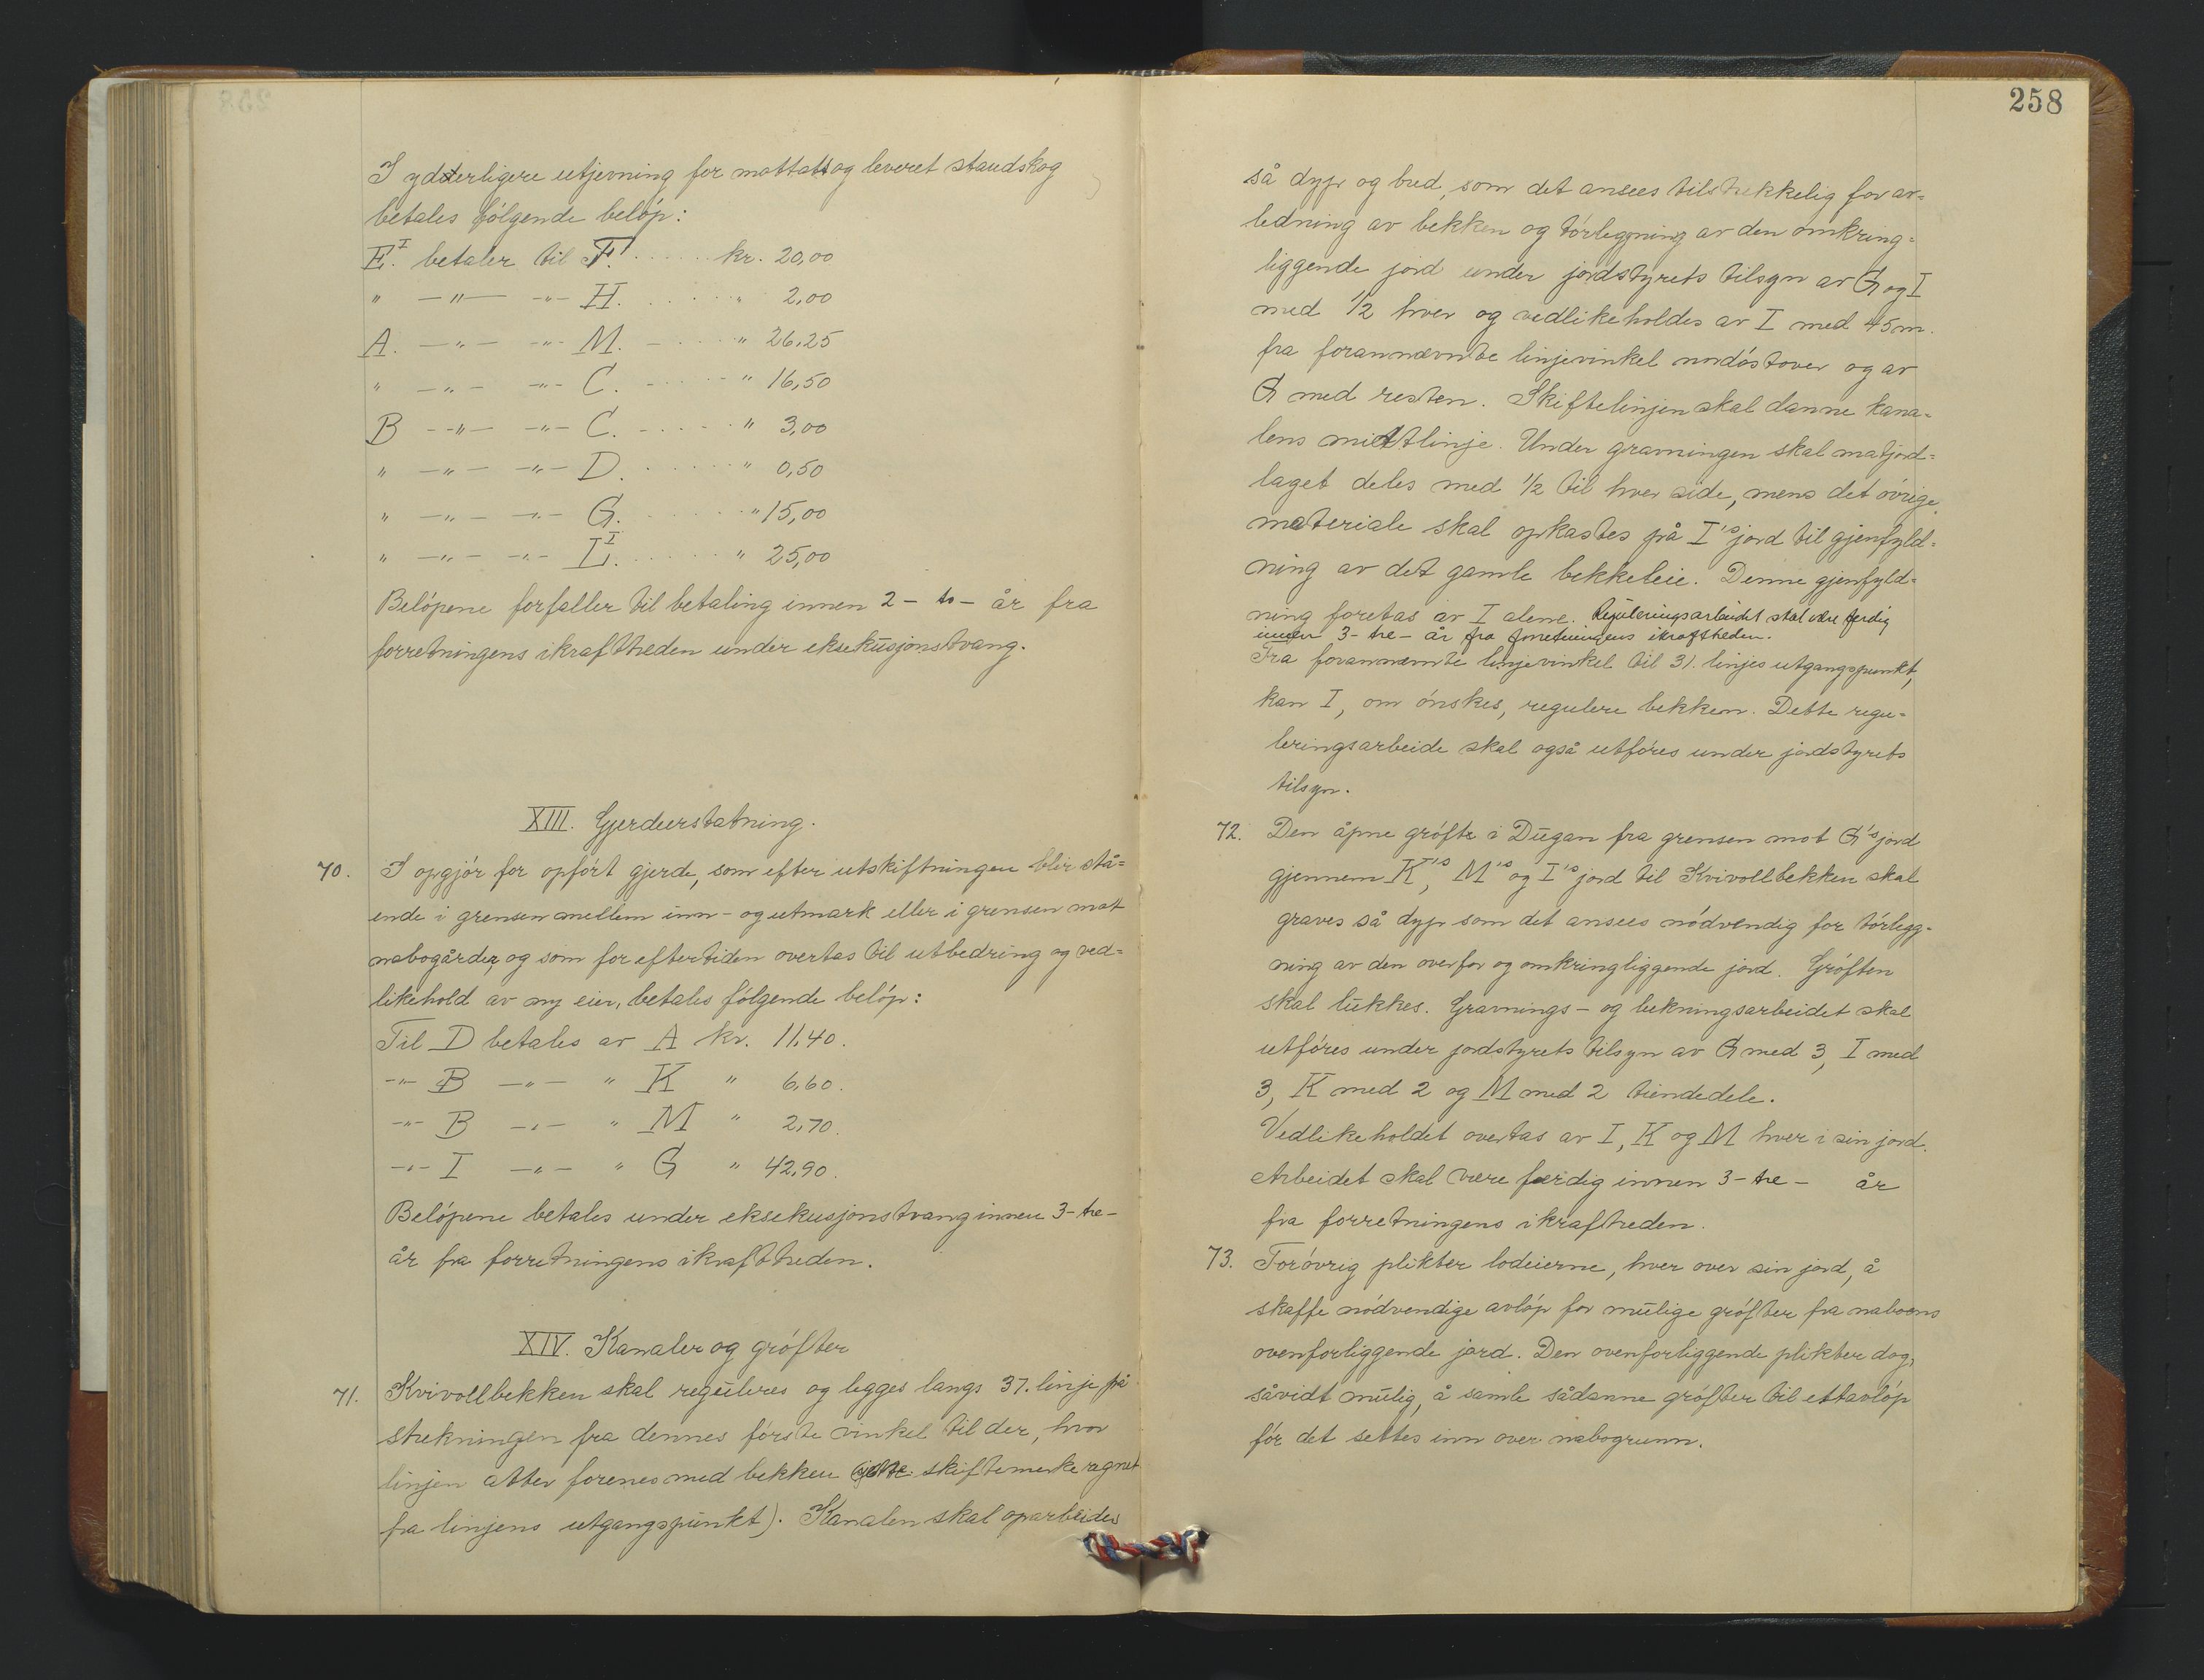 I ydterligere utjevning for mottatt og leveret staudskog
betales følgende beløp:
E.I betaler til F.I . . . . . kr. 20,00
" —"— -"- H. . . . . . " 2,00
A. —"— -"- M. — . . . . " 26,25
" —"— -"- C. — . . . . " 16,50
B —"— -"- C. — . . . . " 3,00
" —"— -"- D. . . . . . " 0,50
" —"— -"- G. . . . . . " 15,00
" —"— -"- L.I . . . . . " 25,00
Beløpene forfaller til betaling innen 2 - to - år fra
forretningens ikrafttreden under eksekusjonstvang.
XIII. Gjerdeerstatning.
70. I opgjør for opført gjerde, som efter utskiftningen blir stå=
ende i grensen mellem inn- og utmark eller i grensen mot
nabogårder, og som for eftertiden overtas til utbedring og ved=
likehold av ny eier, betales følgende beløp:
Til D betales av A kr. 11,40.
-"- B —"— " K " 6,60.
-"- B —"— " M " 2,70.
-"- I —"— " G " 42,90.
Beløpene betales under eksekusjonstvang innen 3 - tre -
år fra forretningens ikrafttreden.
XIV. Kanaler og grøfter
71. Kvivollbekken skal reguleres og legges langs 37. linje på
strekningen fra dennes første vinkel til der, hvor
linjen atter forenes med bekken skiftemerke regnet
fra linjens utgangspunkt). Kanalen skal oparbeides
258
så dyp og bred, som det ansees tilstrekkelig for av=
ledning av bekken og tørlegning av den omkring=
liggende jord under jordstyrets tilsyn av G og I
med 1/2 hver og vedlikeholdes av I med 45 m.
fra forannævnte linjevinkel nordøstover og av
G med resten. Skiftelinjen skal danne kana=
lens midtlinje. Under gravningen skal matjord=
laget deles med 1/2 til hver side, mens det øvrige
materiale skal opkastes på I's jord til gjenfyld=
ning av det gamle bekkeleie. Denne gjenfyld=
ning foretas av I alene. Reguleringsarbeidet skal være ferdig
innen 3 - tre - år fra forretningens ikrafttreden.
Fra forannævnte linjevinkel til 31. linjes utgangspunkt,
kan I, om ønskes, regulere bekken. Dette regu=
leringsarbeide skal også utføres under jordstyrets
tilsyn.
72. Den åpne grøft i Dugan fra grensen mot G's jord
gjennem K's, M's og I's jord til Kvivollbekken skal
graves så dyp som det ansees nødvendig for tørlegg=
ning av den overfor og omkringliggende jord. Grøften
skal lukkes. Gravnings- og lukningsarbeidet skal
utføres under jordstyrets tilsyn av G med 3, I med
3, K med 2 og M med 2 tiendedele.
Vedlikeholdet overtas av I, K og M hver i sin jord.
Arbeidet skal være færdig innen 3 - tre - år
fra forretningens ikrafttreden.
73. Forøvrig plikter lodeierne, hver over sin jord, å
skaffe nødvendige avløp for mulige grøfter fra naboens
ovenforliggende jord. Den ovenforliggende plikter dog,
såvidt mulig, å samle sådanne grøfter til ett avløp
før det settes inn over nabogrunn.